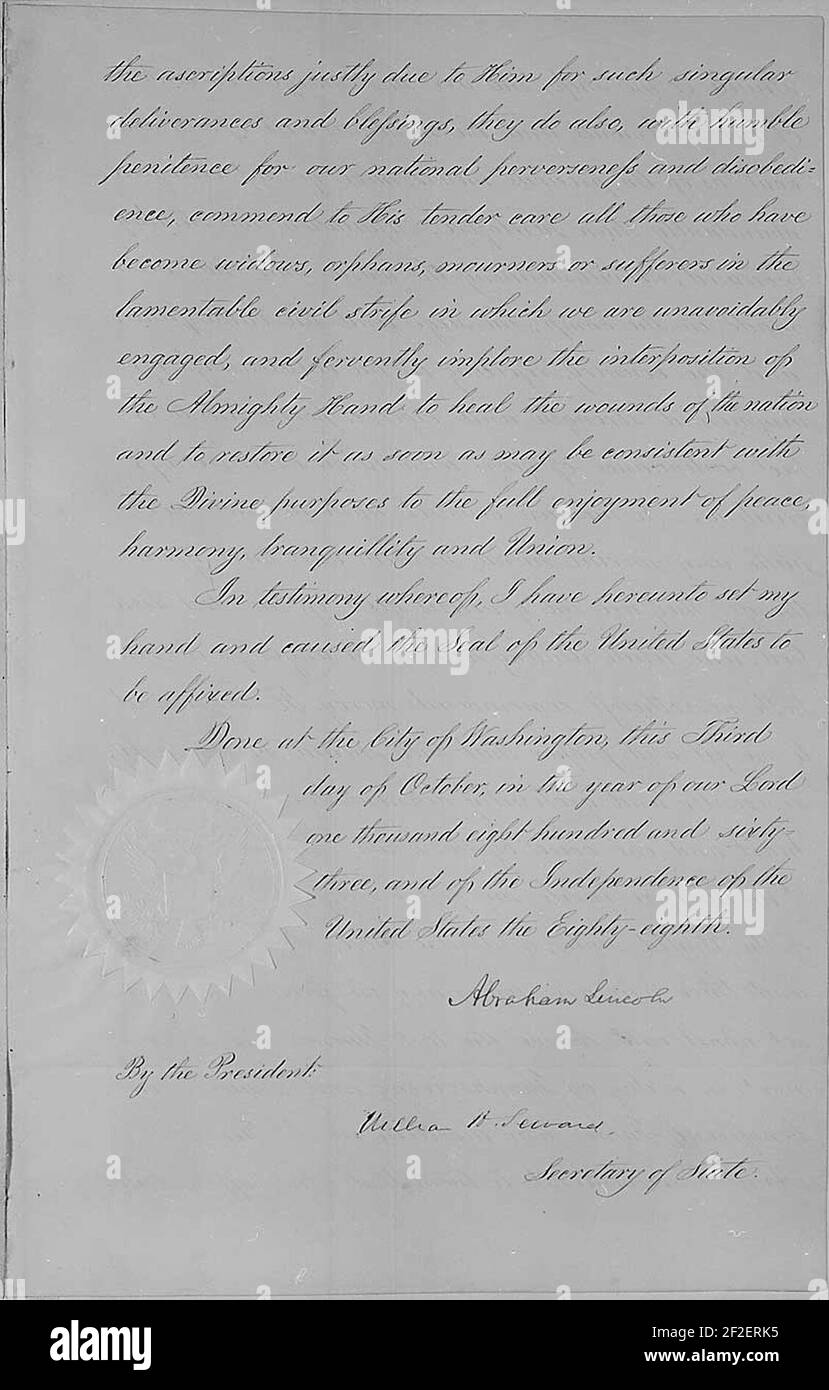 the ascriptions justly due to Him for such singular
deliverances and blessings, they do also, with humble
penitence for our national perverseness and disobedi=
ence, commend to His tender care all those who have
become widows, orphans, mourners or sufferers in the
lamentable civil strife in which we are unavoidably
engaged, and fervently implore the interposition of
the Almighty Hand to heal the wounds of the nation
and to restore it as soon as may be consistent with
the Divine purposes to the full enjoyment of peace,
harmony, tranquillity and Union.
In testimony whereof, I have hereunto set my
hand and caused the Seal of the United States to
be affixed.
Done at the City of Washington, this Third
day of October, in the year of our Lord
one thousand eight hundred and sixty-
three, and of the Independence of the
United States the Eighty-eighth.
Abraham Lincoln
By the President:
William H. Seward,
Secretary of State.
alamy
alamy
Image ID: 2F2ERK5
www.alamy.com